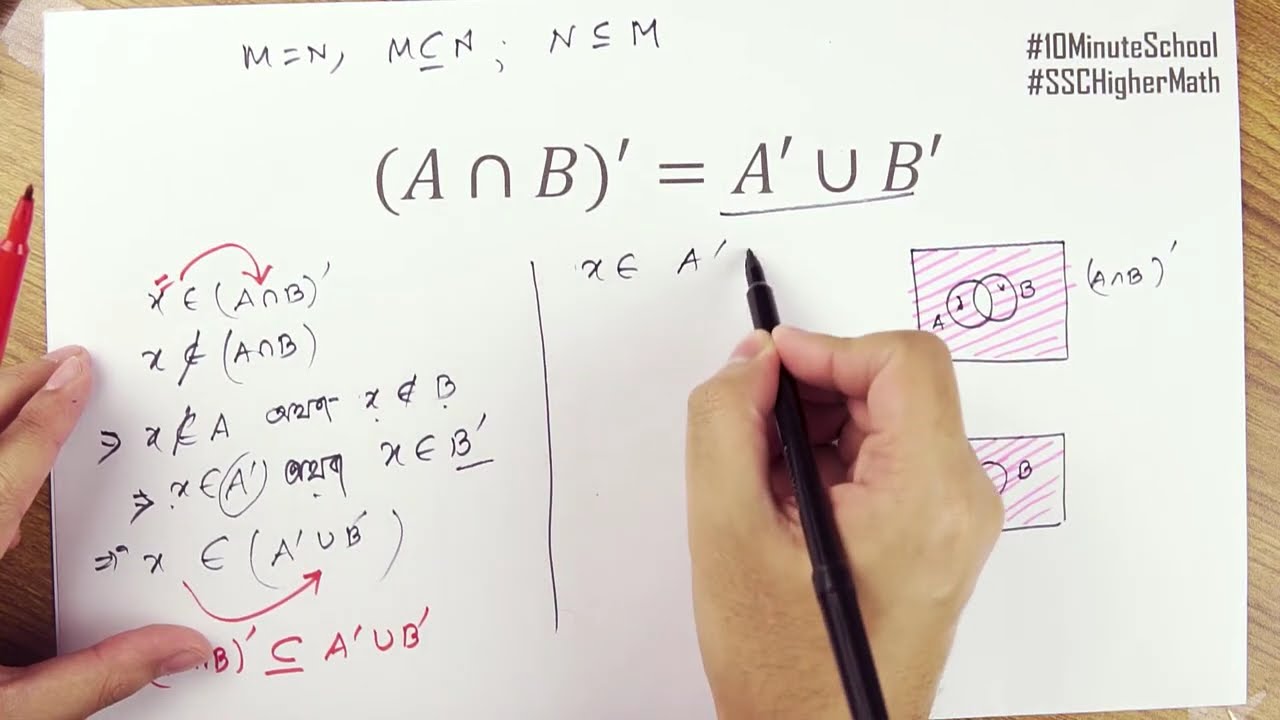 M=N, M⊆N ; N⊆M
#10MinuteSchool
#SSCHigherMath
(A ∩ B)′ = A′ ∪ B′
x ∈ (A∩B)′
x ∉ (A∩B)
⇒ x∉A অথবা x ∉ B
⇒ x∈A′ অথবা x∈B′
⇒ x ∈ (A′∪B′)
B)′ ⊆ A′∪B′
x∈ A′
A B (A∩B)′
B